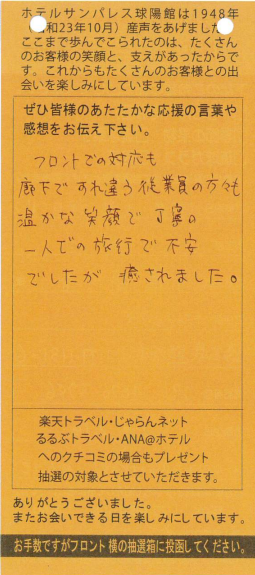 ホテルサンパレス球陽館は1948年
和23年10月）産声をあげました
ここまで歩んでこられたのは、たくさん
のお客様の笑顔と、支えがあったからで
す。これからもたくさんのお客様との出
会いを楽しみにしています。
ぜひ皆様のあたたかな応援の言葉や
感想をお伝え下さい。
フロントでの対応も
廊下ですれ違う従業員の方々も
温かな笑顔で丁寧。
一人での旅行で不安
でしたが 癒されました。
楽天トラベル・じゃらんネット
るるぶトラベル・ANA@ホテル
へのクチコミの場合もプレゼント
抽選の対象とさせていただきます。
ありがとうございました。
またお会いできる日を楽しみにしています。
お手数ですがフロント横の抽選箱に投函してください。